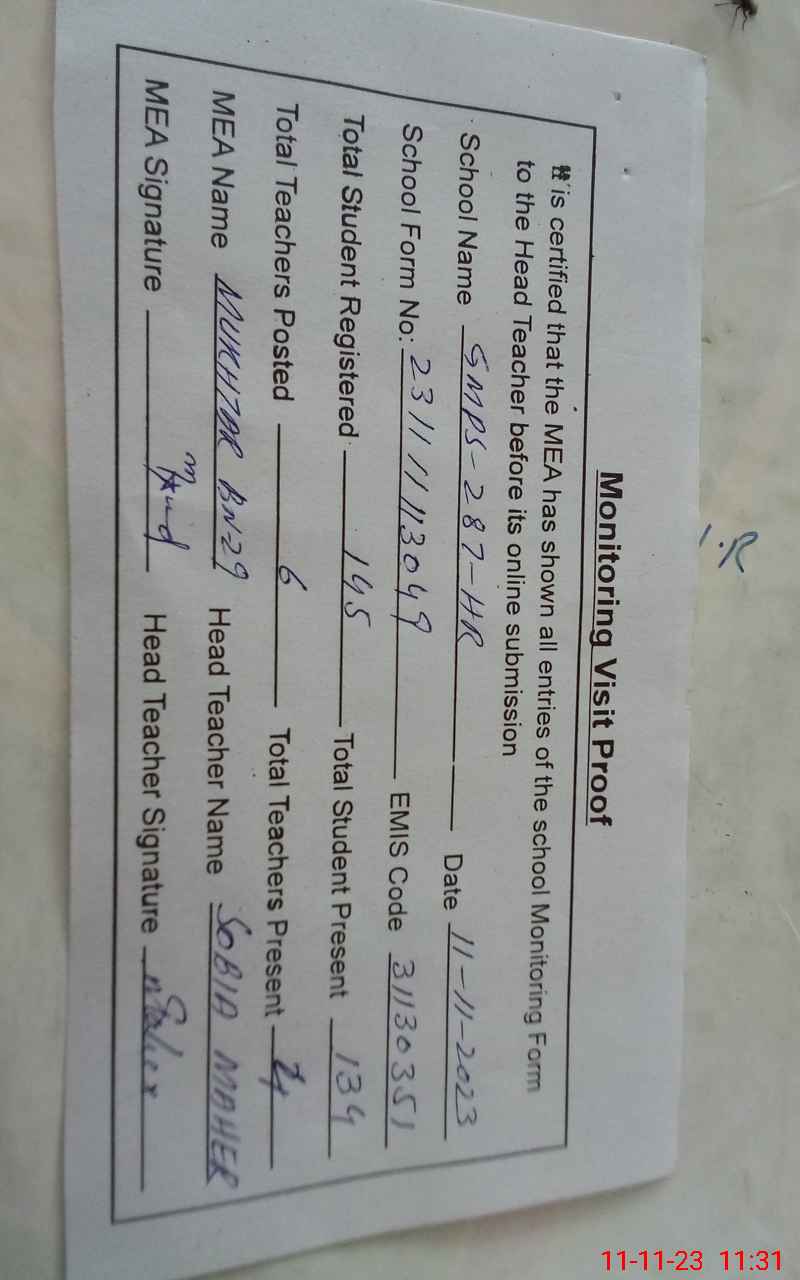 I.R
Monitoring Visit Proof
It is certified that the MEA has shown all entries of the school Monitoring Form
to the Head Teacher before its online submission
School Name GMPS-287-HR Date 11-11-2023
School Form No: 23111113049 EMIS Code 31130351
Total Student Registered 145 Total Student Present 134
Total Teachers Posted 6 Total Teachers Present 4
MEA Name MUKHTAR BN-29 Head Teacher Name SOBIA MAHER
MEA Signature Head Teacher Signature
11-11-23 11:31